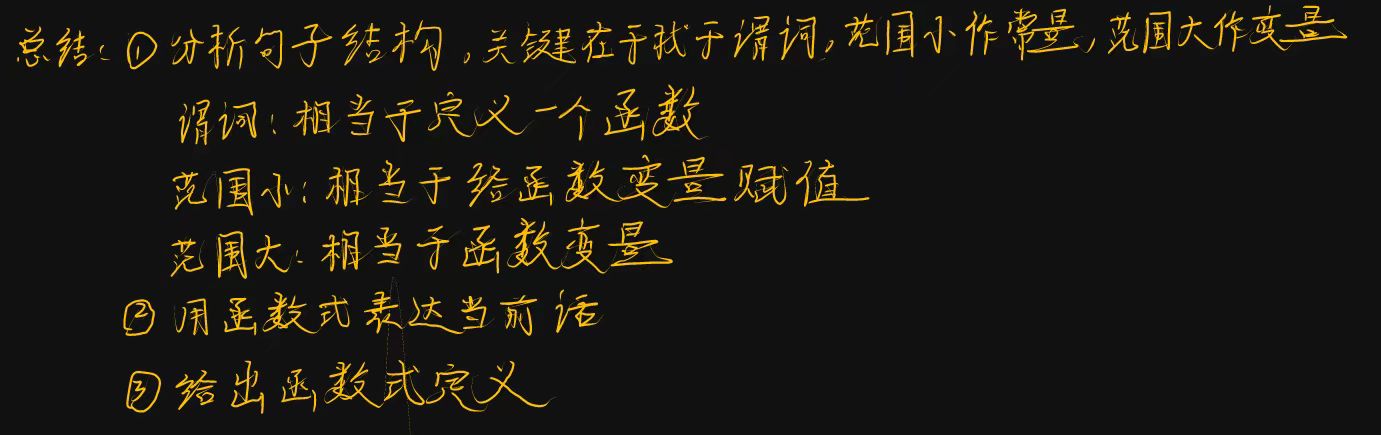 总结：①分析句子结构，关键在于找于谓词，范围小作常量，范围大作变量
谓词：相当于定义一个函数
范围小：相当于给函数变量赋值
范围大：相当于函数变量
②用函数式表达当前话
③给出函数式定义